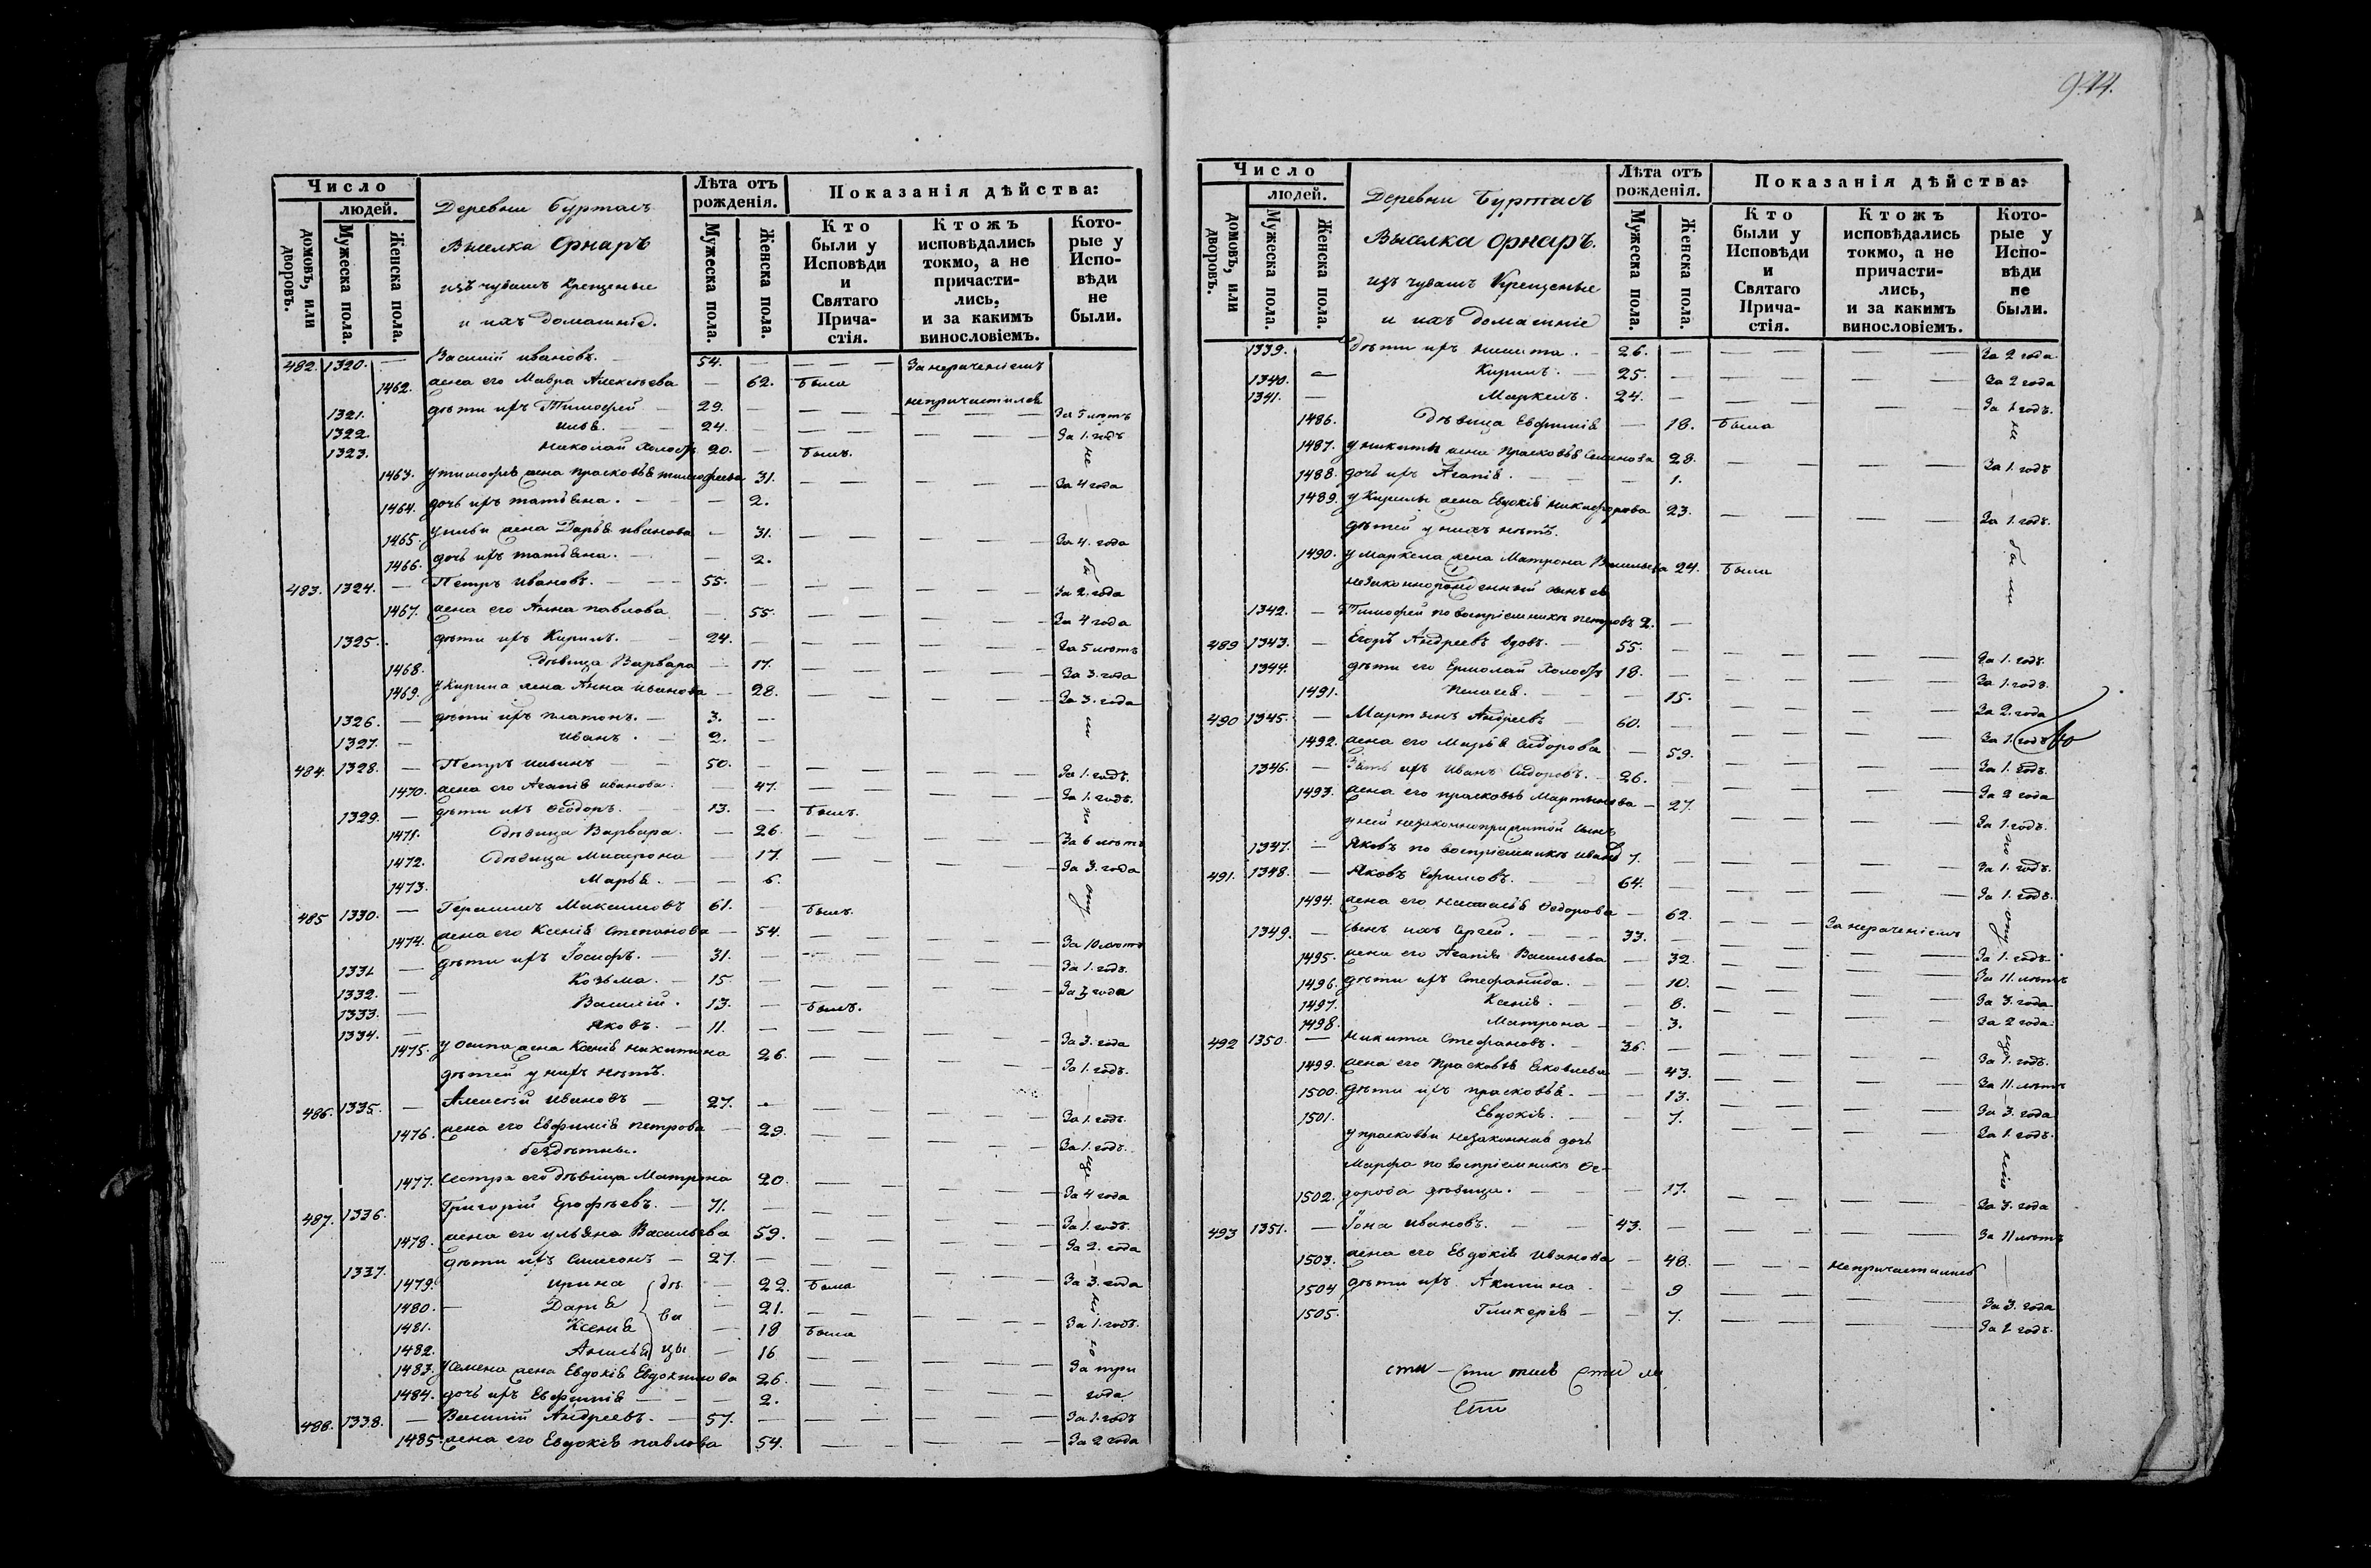 Число
людей.
домовъ, или дворовъ.
Мужеска пола.
Женска пола.
Деревни Буртасъ
Выселка Орнаръ
изъ чувашъ крещеные
и ихъ домашніе.
Лѣта отъ рожденія.
Мужеска пола.
Женска пола.
Показанія дѣйства:
Кто были у Исповѣди и Святаго Прича-стія.
Ктожъ исповѣдались токмо, а не причасти-лись, и за какимъ винословіемъ.
Кото-рые у Испо-вѣди не были.
482. 1320. — Василій Ивановъ. 54. — — — За нераченіемъ
1462. жена его Мавра Алексѣева — 62. была
непричастился
1321. дѣти ихъ Тимофей — 29. — — — За 5 лѣтъ
1322. Илья. — 24. — — — За 1. годъ
1323. Николай холостъ 20. — былъ.
1463. у Тимофея жена Прасковья Тимофеева 31. — — За 4 года
1464. дочь ихъ Татьяна. — 2.
1465. у Ильи жена Дарья Иванова — 31. — — За 4. года
1466. дочь ихъ Татьяна. — 2.
483. 1324. — Петръ Ивановъ. — 55. — — — За 2. года
1467. жена его Анна Павлова — 55. — — За 4 года
1325. дѣти ихъ Кирилъ. — 24. — — — За 5 лѣтъ
1468. дѣвица Варвара — 17. — — За 3. года
1469. у Кирила жена Анна Иванова — 28. — — За 3. года
1326. — дѣти ихъ Платонъ. — 3. —
1327. — Иванъ. — 2. —
484. 1328. — Петръ Ильинъ — 50. — — — За 1. годъ.
1470. жена его Агапія Иванова. — 47. — — За 1. годъ.
1329. — дѣти ихъ Ѳеодоръ. — 13. — былъ.
1471. дѣвица Варвара. — 26. — — За 6 лѣтъ
1472. дѣвица Матрона — 17. — — За 3. года
1473. Марья. — 6.
485 1330. — Герасимъ Максимовъ 61. — былъ.
1474. жена его Ксенія Степанова — 54. — — За 10 лѣтъ
1331. — дѣти ихъ Іосифъ. — 31. — — — За 1. годъ.
1332. — Козьма. — 15. — — — года
1333. — Василій. 13. — былъ.
1334. — Яковъ. — 11. — — — За 3. года
1475. у Осипа жена Ксенія Никитина 26. — — За 1. годъ.
дѣтей у нихъ нѣтъ.
486. 1335. — Алексѣй Ивановъ — 27. — — — За 1. годъ.
1476. жена его Евфимія Петрова — 29. — — За 1. годъ.
бездѣтны.
1477. сестра его дѣвица Матрона 20. — — За 4 года
487. 1336. Григорій Ерофѣевъ. — 71. — — — За 1. годъ.
1478. жена его Ульяна Васильева 59. — — За 2. года
1337. дѣти ихъ Симеонъ — 27. — — — За 3. года
1479. Ирина дѣ — 22. была
1480. — Дарія ви — 21. — — За 1. годъ.
1481. Ксенія — 18 была
1482. Анисья цы — 16 — — За три
1483. у Семена жена Евдокія Евдокимова 26. — — года
1484. дочь ихъ Евфимія — 2.
488. 1338. — Василій Андреевъ. — 57. — — — За 1. годъ
1485. жена его Евдокія Павлова 54. — — За 2 года
Число
людей.
домовъ, или дворовъ.
Мужеска пола.
Женска пола.
Деревни Буртасъ
Выселка Орнаръ.
изъ чувашъ Крещеные
и ихъ домашніе
Лѣта отъ рожденія.
Мужеска пола.
Женска пола.
Показанія дѣйства:
Кто были у Исповѣди и Святаго Прича-стія.
Ктожъ исповѣдались токмо, а не причасти-лись, и за какимъ винословіемъ.
Кото-рые у Испо-вѣди не были.
1339. дѣти ихъ Никита. — 26. — — — За 2 года.
1340. — Кирилъ. — 25. — — — За 2 года
1341. — Маркелъ. 24. — — — За 1 годъ.
1486. дѣвица Евфимія — 18. была
1487. у Никиты жена Прасковья Семенова 28. — — За 1. годъ
1488. дочь ихъ Агапія. — 1.
1489. у Кирилы жена Евдокія Никифорова 23. — — За 1. годъ.
дѣтей у нихъ нѣтъ.
1490. у Маркела жена Матрона Васильева 24. была
незаконнорожденный сынъ ея
1342. — Тимофей по воспріемнику Петровъ 2. —
489 1343. — Егоръ Андреевъ вдовъ. — 55. — — — За 1. годъ.
1344. дѣти его Ермолай холостъ 18. — — — За 1. годъ.
1491. Пелагея. — 15. — — За 2. года
490 1345. — Мартынъ Андреевъ — 60. — — — За 1. годъ
1492. жена его Марья Сидорова — 59. — — За 1. годъ.
1346. — Зять ихъ Иванъ Сидоровъ. — 26. — — — За 2 года
1493. жена его Прасковья Мартынова — 27. — — За 1. годъ.
у ней незаконноприжитой сынъ
1347. — Яковъ по воспріемнику Иванъ 7. — — — За 1. годъ.
491. 1348. — Яковъ Ефимовъ. — 64. — — — За 1. годъ.
1494. жена его Настасья Ѳедорова — 62. — — За нераченіемъ
1349. — Сынъ ихъ Сергей. — 33. — — — За 1. годъ
1495. жена его Агапія Васильева — 32. — — За 11. лѣтъ
1496. дѣти ихъ Стефанида. — 10. — — За 3. года
1497. Ксенія. — 8. — — За 2 года.
1498. Матрона — 3.
492 1350. — Никита Стефановъ. — 36. — — — За 1. годъ.
1499. жена его Прасковья Яковлева — 43. — — За 11. лѣтъ
1500. дѣти ихъ Прасковья. — 13. — — За 3. года
1501. Евдокія. — 7. — — За 1. годъ.
у Прасковьи незаконная дочь
Марфа по воспріемнику Ѳе-
1502. дорова дѣвица. — 17. — — За 3. года
493 1351. — Іона Ивановъ. — 43. — — — За 11 лѣтъ
1503. жена его Евдокія Иванова — 48. — — непричастилась
1504 дѣти ихъ Акилина — 9 — — За 3. года
1505. Гликерія — 7. — — За 1 годъ.